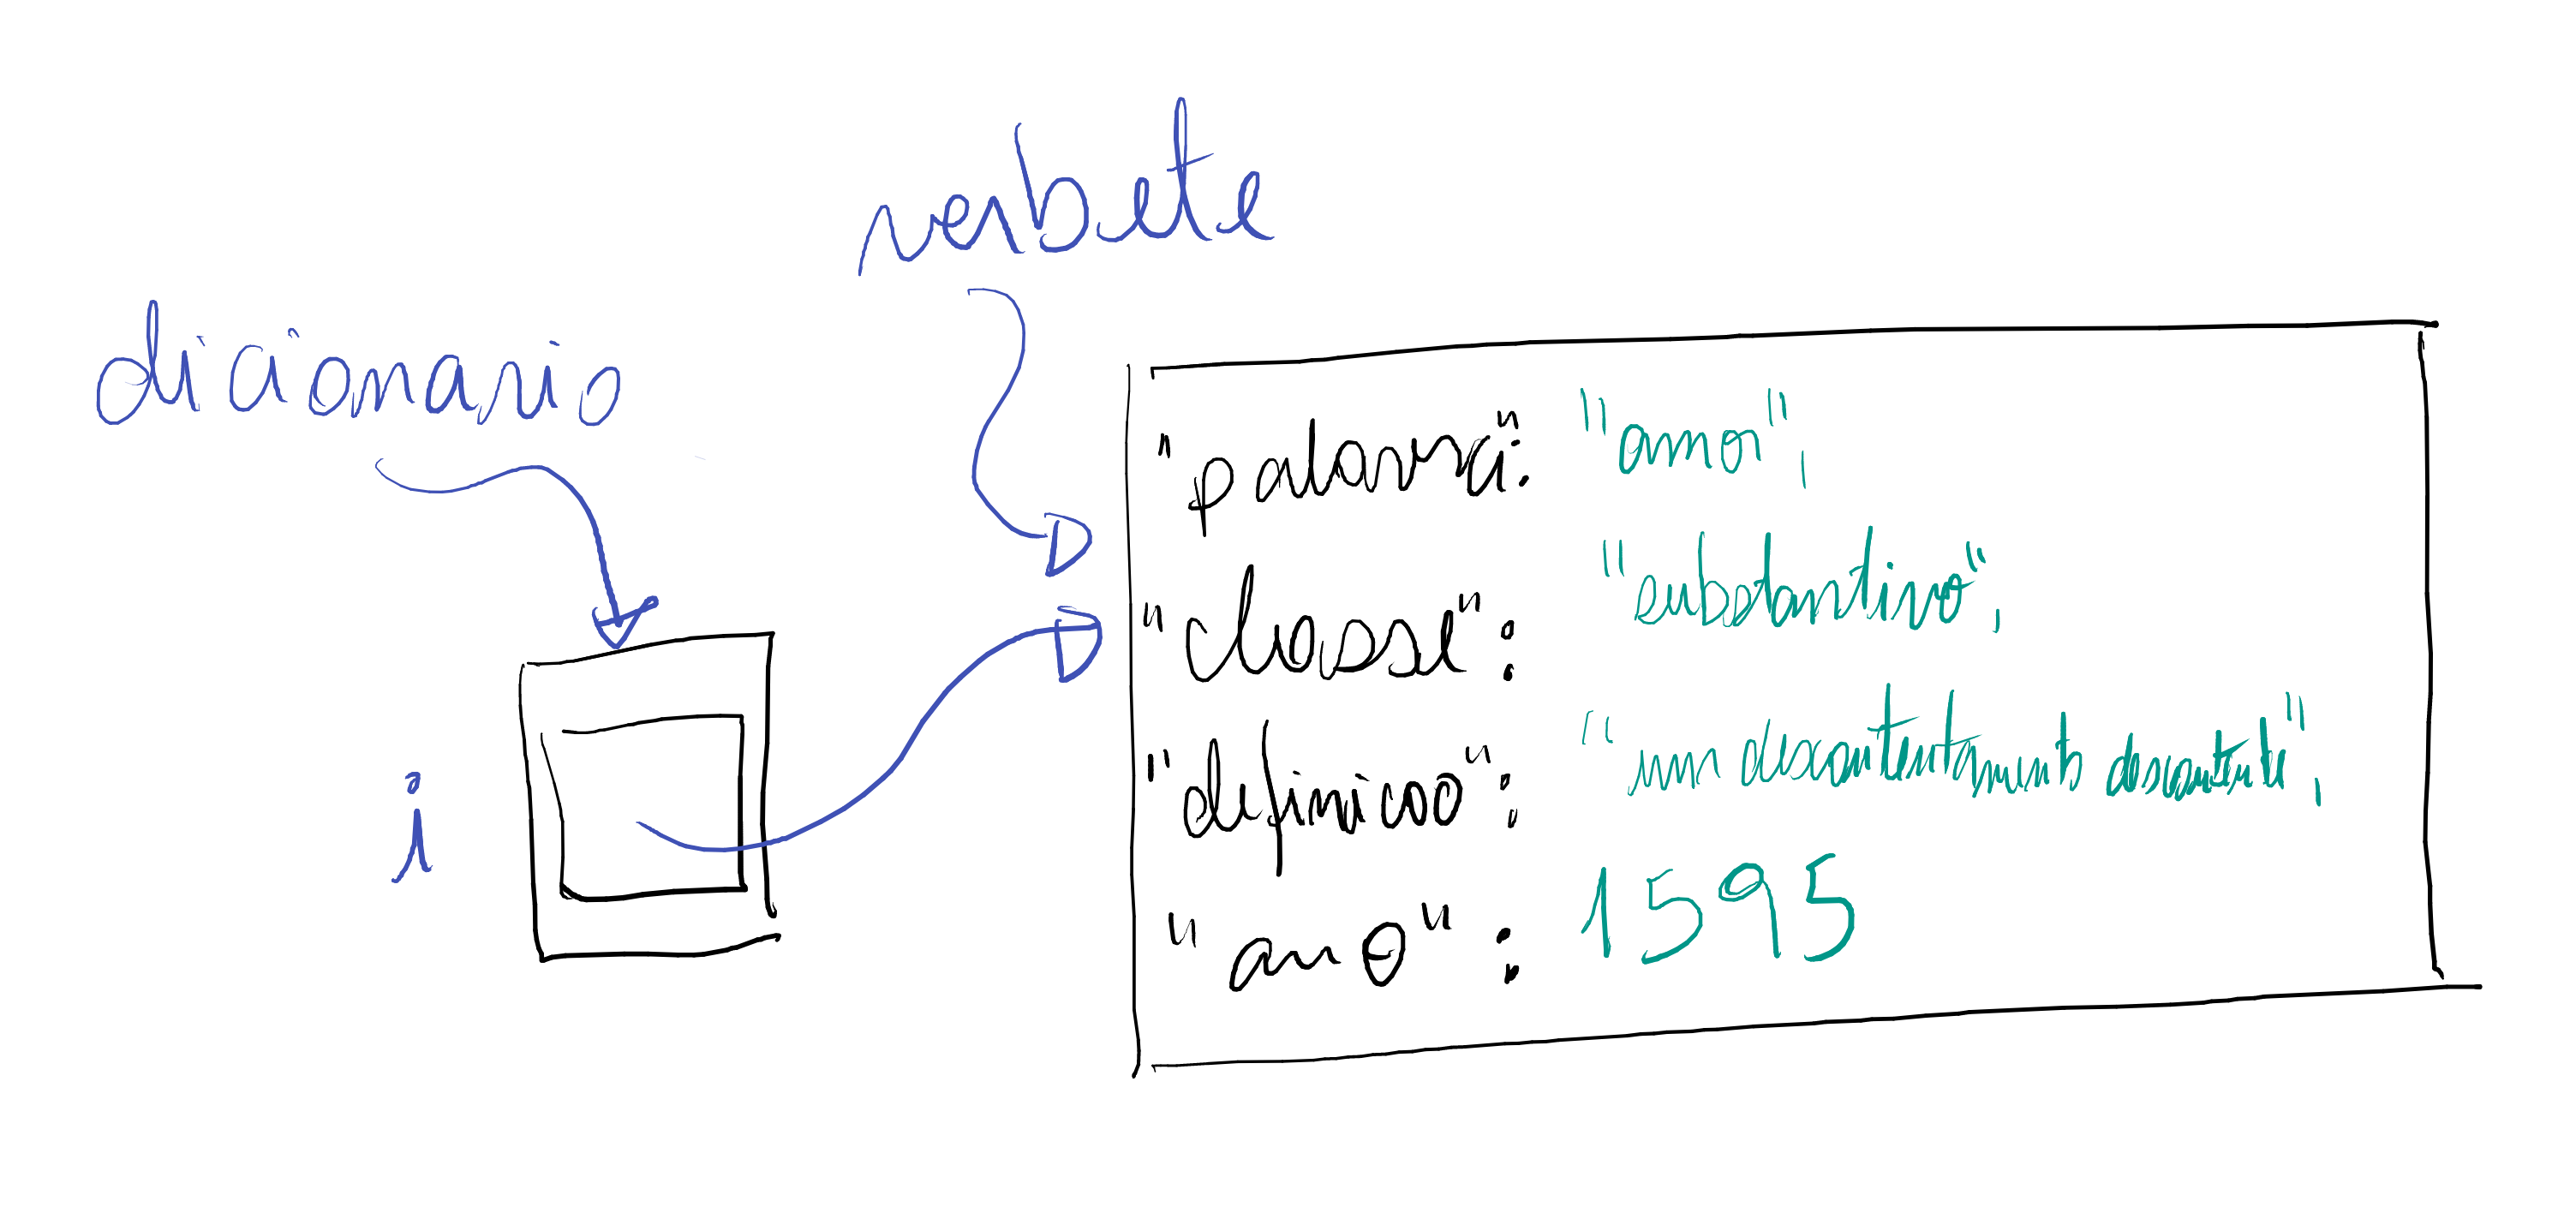 verbete
dicionario
"palavra": "amor",
"classe": "substantivo",
"definicao": "um descontentamento descontente",
i
"ano": 1595